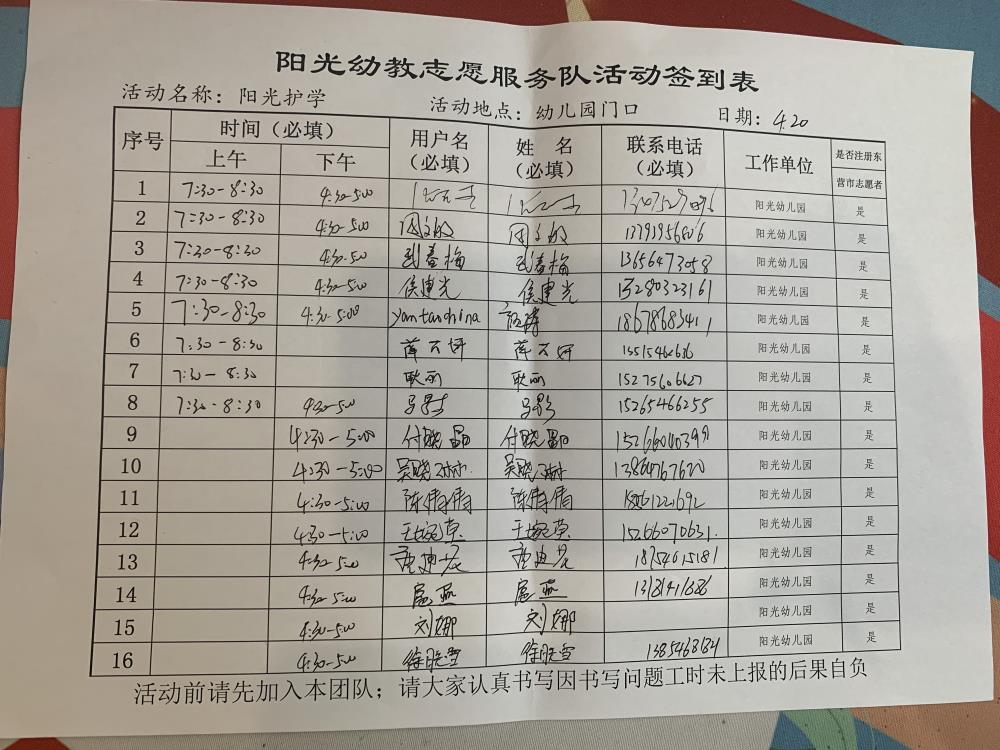 阳光幼教志愿服务队活动签到表
活动名称：阳光护学 活动地点：幼儿园门口 日期：4.20
序号 时间（必填） 用户名（必填） 姓 名（必填） 联系电话（必填） 工作单位 是否注册东营市志愿者
上午 下午
1 7:30-8:30 4:30-5:00 阳光幼儿园 是
2 7:30-8:30 4:30-5:00 13791956806 阳光幼儿园 是
3 7:30-8:30 4:30-5:00 春梅 春梅 13656473058 阳光幼儿园 是
4 7:30-8:30 4:30-5:00 侯建光 侯建光 15280323161 阳光幼儿园 是
5 7:30-8:30 4:30-5:00 yantaochina 18678683411 阳光幼儿园 是
6 7:30-8:30 阳光幼儿园 是
7 7:30-8:30 耿丽 耿丽 15275606627 阳光幼儿园 是
8 7:30-8:30 4:30-5:00 15265466255 阳光幼儿园 是
9 4:30-5:00 付晓晶 付晓晶 15266040399 阳光幼儿园 是
10 4:30-5:00 吴晓琳 吴晓琳 阳光幼儿园 是
11 4:30-5:00 陈倩倩 陈倩倩 阳光幼儿园 是
12 4:30-5:00 王婉莹 王婉莹 15266070631 阳光幼儿园 是
13 4:30-5:00 18754615181 阳光幼儿园 是
14 4:30-5:00 扈燕 扈燕 阳光幼儿园 是
15 4:30-5:00 刘娜 刘娜 阳光幼儿园 是
16 4:30-5:00 徐晓雪 徐晓雪 阳光幼儿园 是
活动前请先加入本团队；请大家认真书写因书写问题工时未上报的后果自负